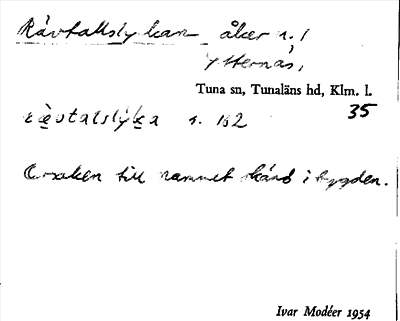 Rävtallslyckan åker s. 1
Ytternäs,
Tuna sn, Tunaläns hd, Klm. l.
35
rävtalslyka s. 162
Orsaken till namnet känd i bygden.
Ivar Modéer 1954